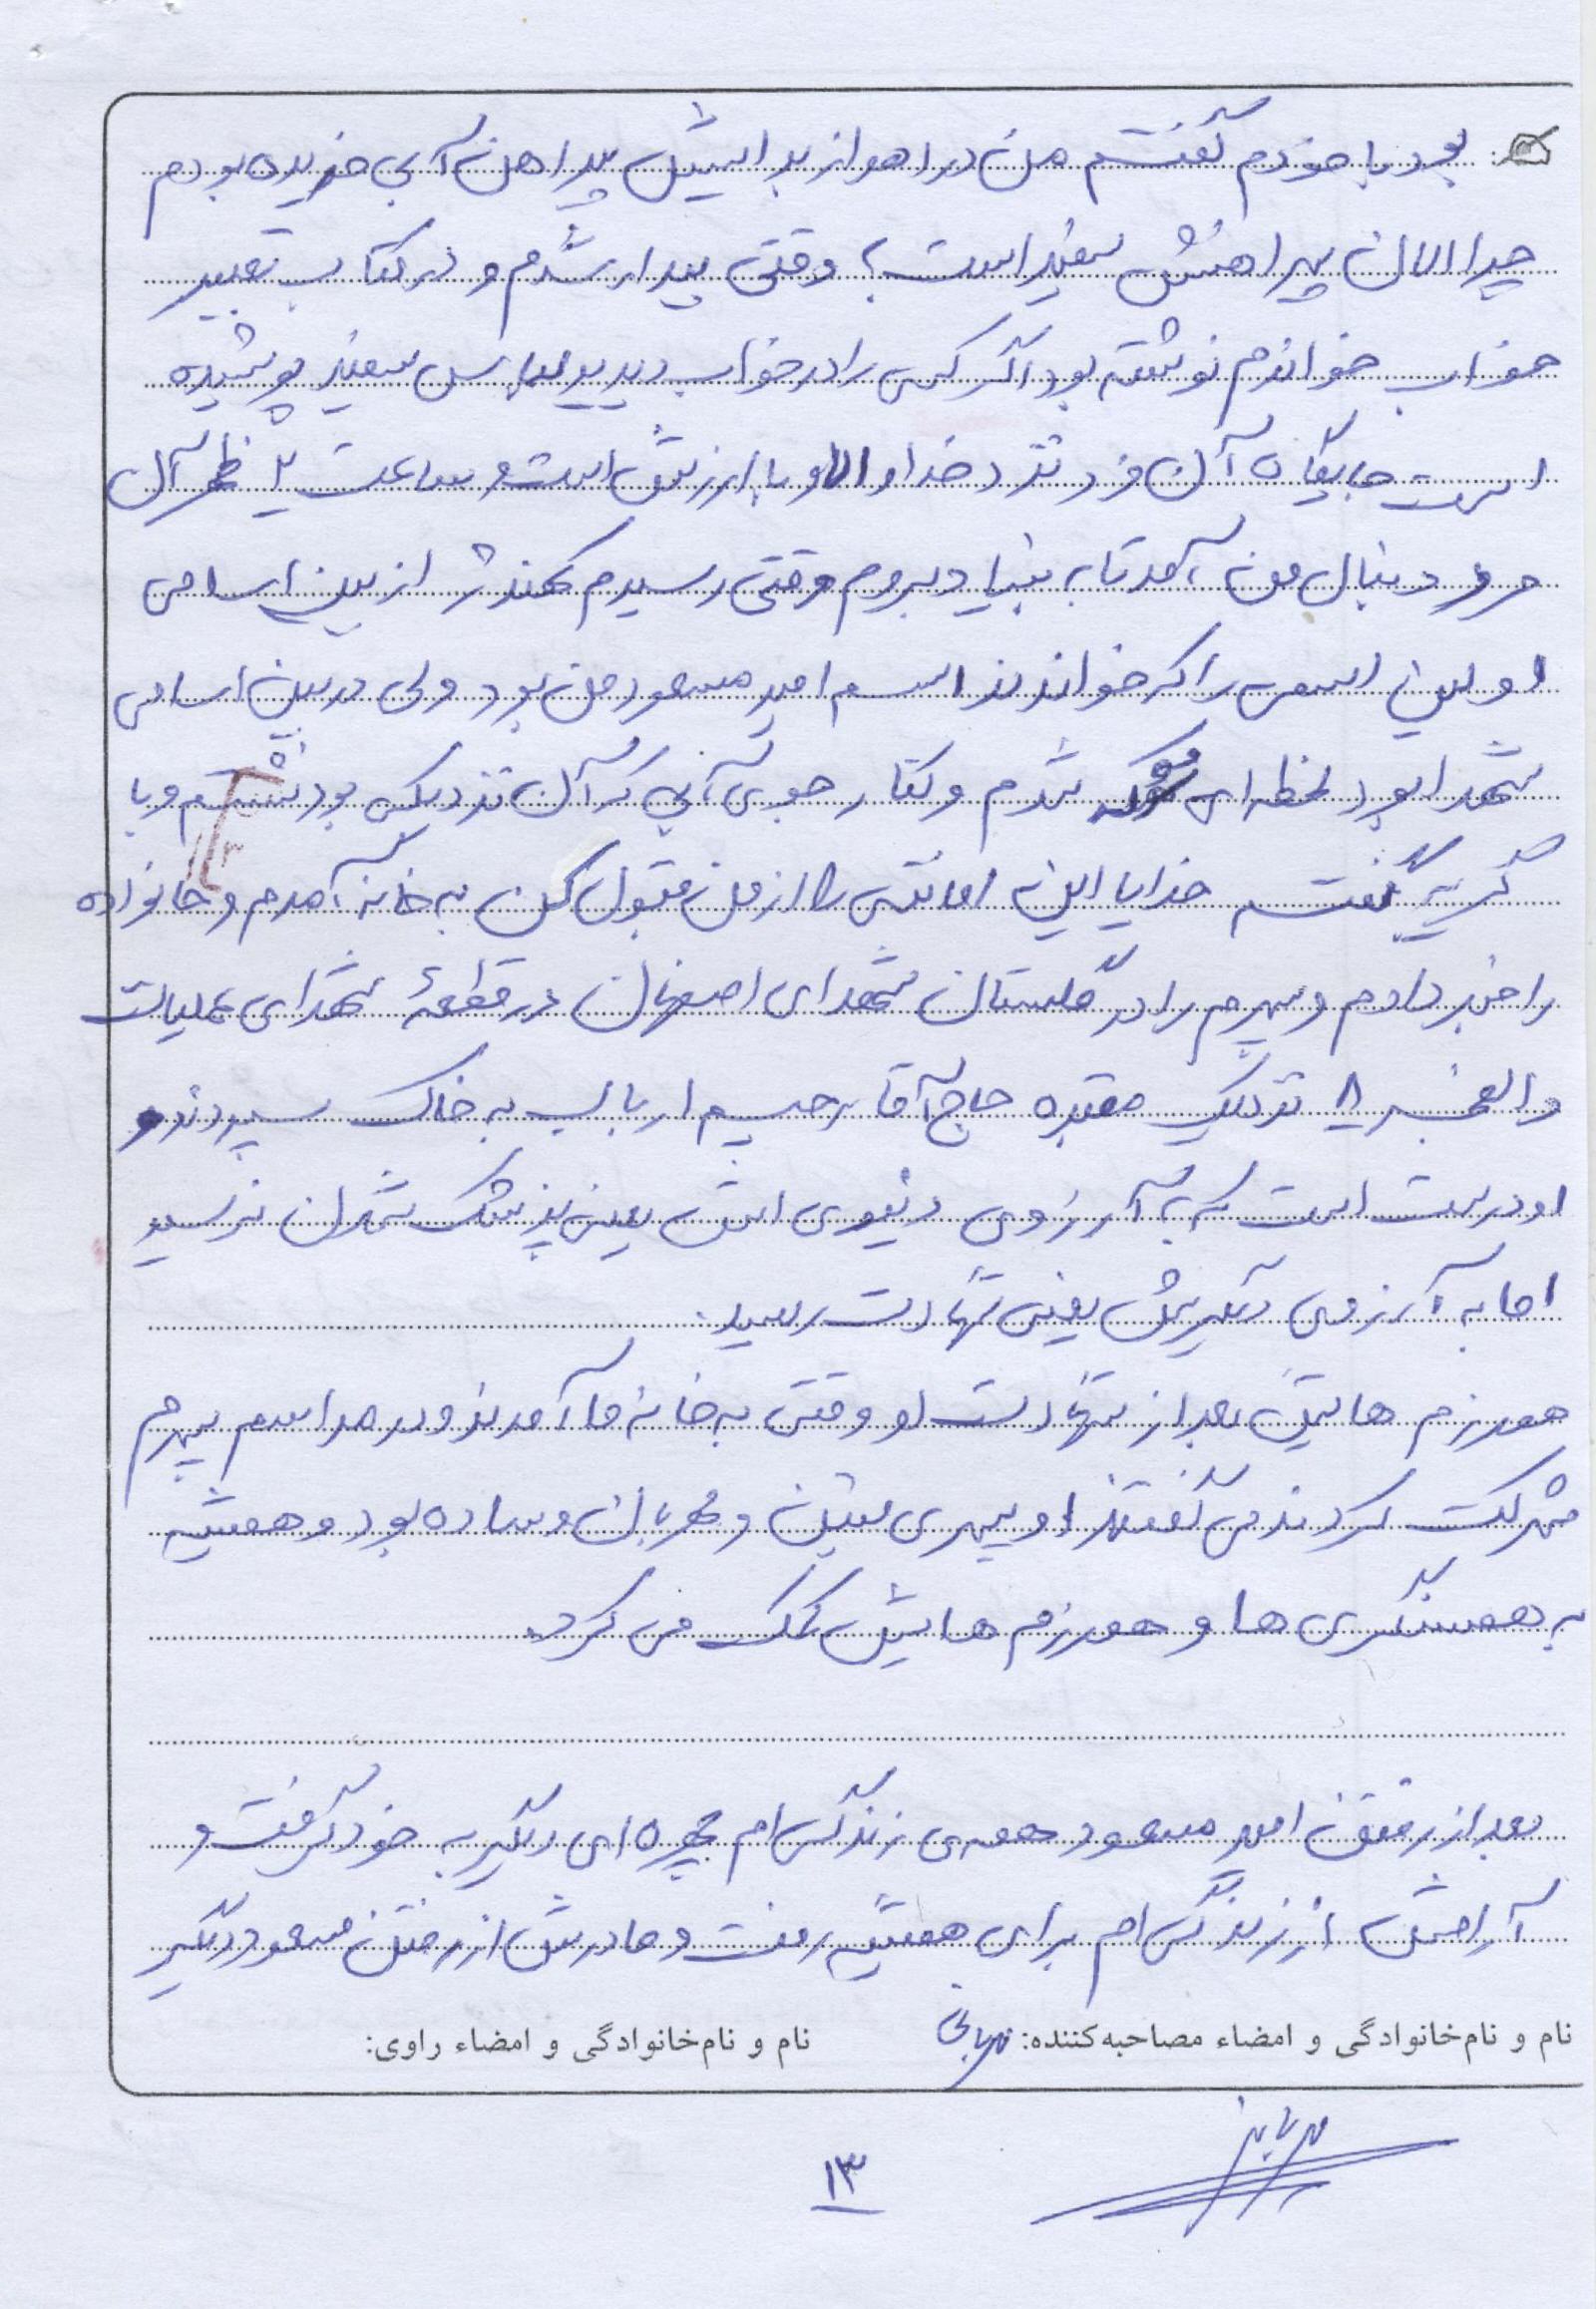 بود با خودم گفتم من در اهواز برایش پیراهن آبی خریده بودم
چرا الان پیراهنش سفید است؟ وقتی بیدار شدم و در کتاب تعبیر
خواب خواندم نوشته بود اگر کسی را در خواب دیدید لباس سفید پوشیده
است جایگاه آن فرد نزد خدا والا و با ارزش است و ساعت ۲ ظهر آن
مرد دنبال من آمد تا به بنیاد بروم وقتی رسیدم کهندژ از بین اسامی
اولین اسمی را که خواندند اسم امیر مسعود من بود ولی در بین اسامی
شهدا بود لحظه‌ای شوکه شدم و کنار جوی آبی که آن نزدیک بود نشستم و با
گریه گفتم خدایا این امانتی را از من قبول کن به خانه آمدم و خانواده
را خبر دادم و پسرم را در گلستان شهدای اصفهان در قطعهٔ شهدای عملیات
والفجر ۸ نزدیک مقبره حاج آقا رحیم ارباب به خاک سپردند و
او درست است که به آرزوی دنیوی اش یعنی پزشک شدن نرسید
اما به آرزوی دیگریش یعنی شهادت رسید.
همرزم هایش بعد از شهادت او وقتی به خانه ما آمدند و در مراسم پسرم
شرکت کردند می گفتند او پسری متین و مهربان و ساده بود و همیشه
به همسنگری ها و همرزم هایش کمک می کرد.
بعد از رفتن امیر مسعود همه‌ی زندگی ام چهره‌ای دیگر به خود گرفت و
آرامش از زندگی ام برای همیشه رفت و مادرش از رفتن مسعود دیگر
نام و نام‌خانوادگی و امضاء مصاحبه‌کننده: نام و نام‌خانوادگی و امضاء راوی:
۱۳